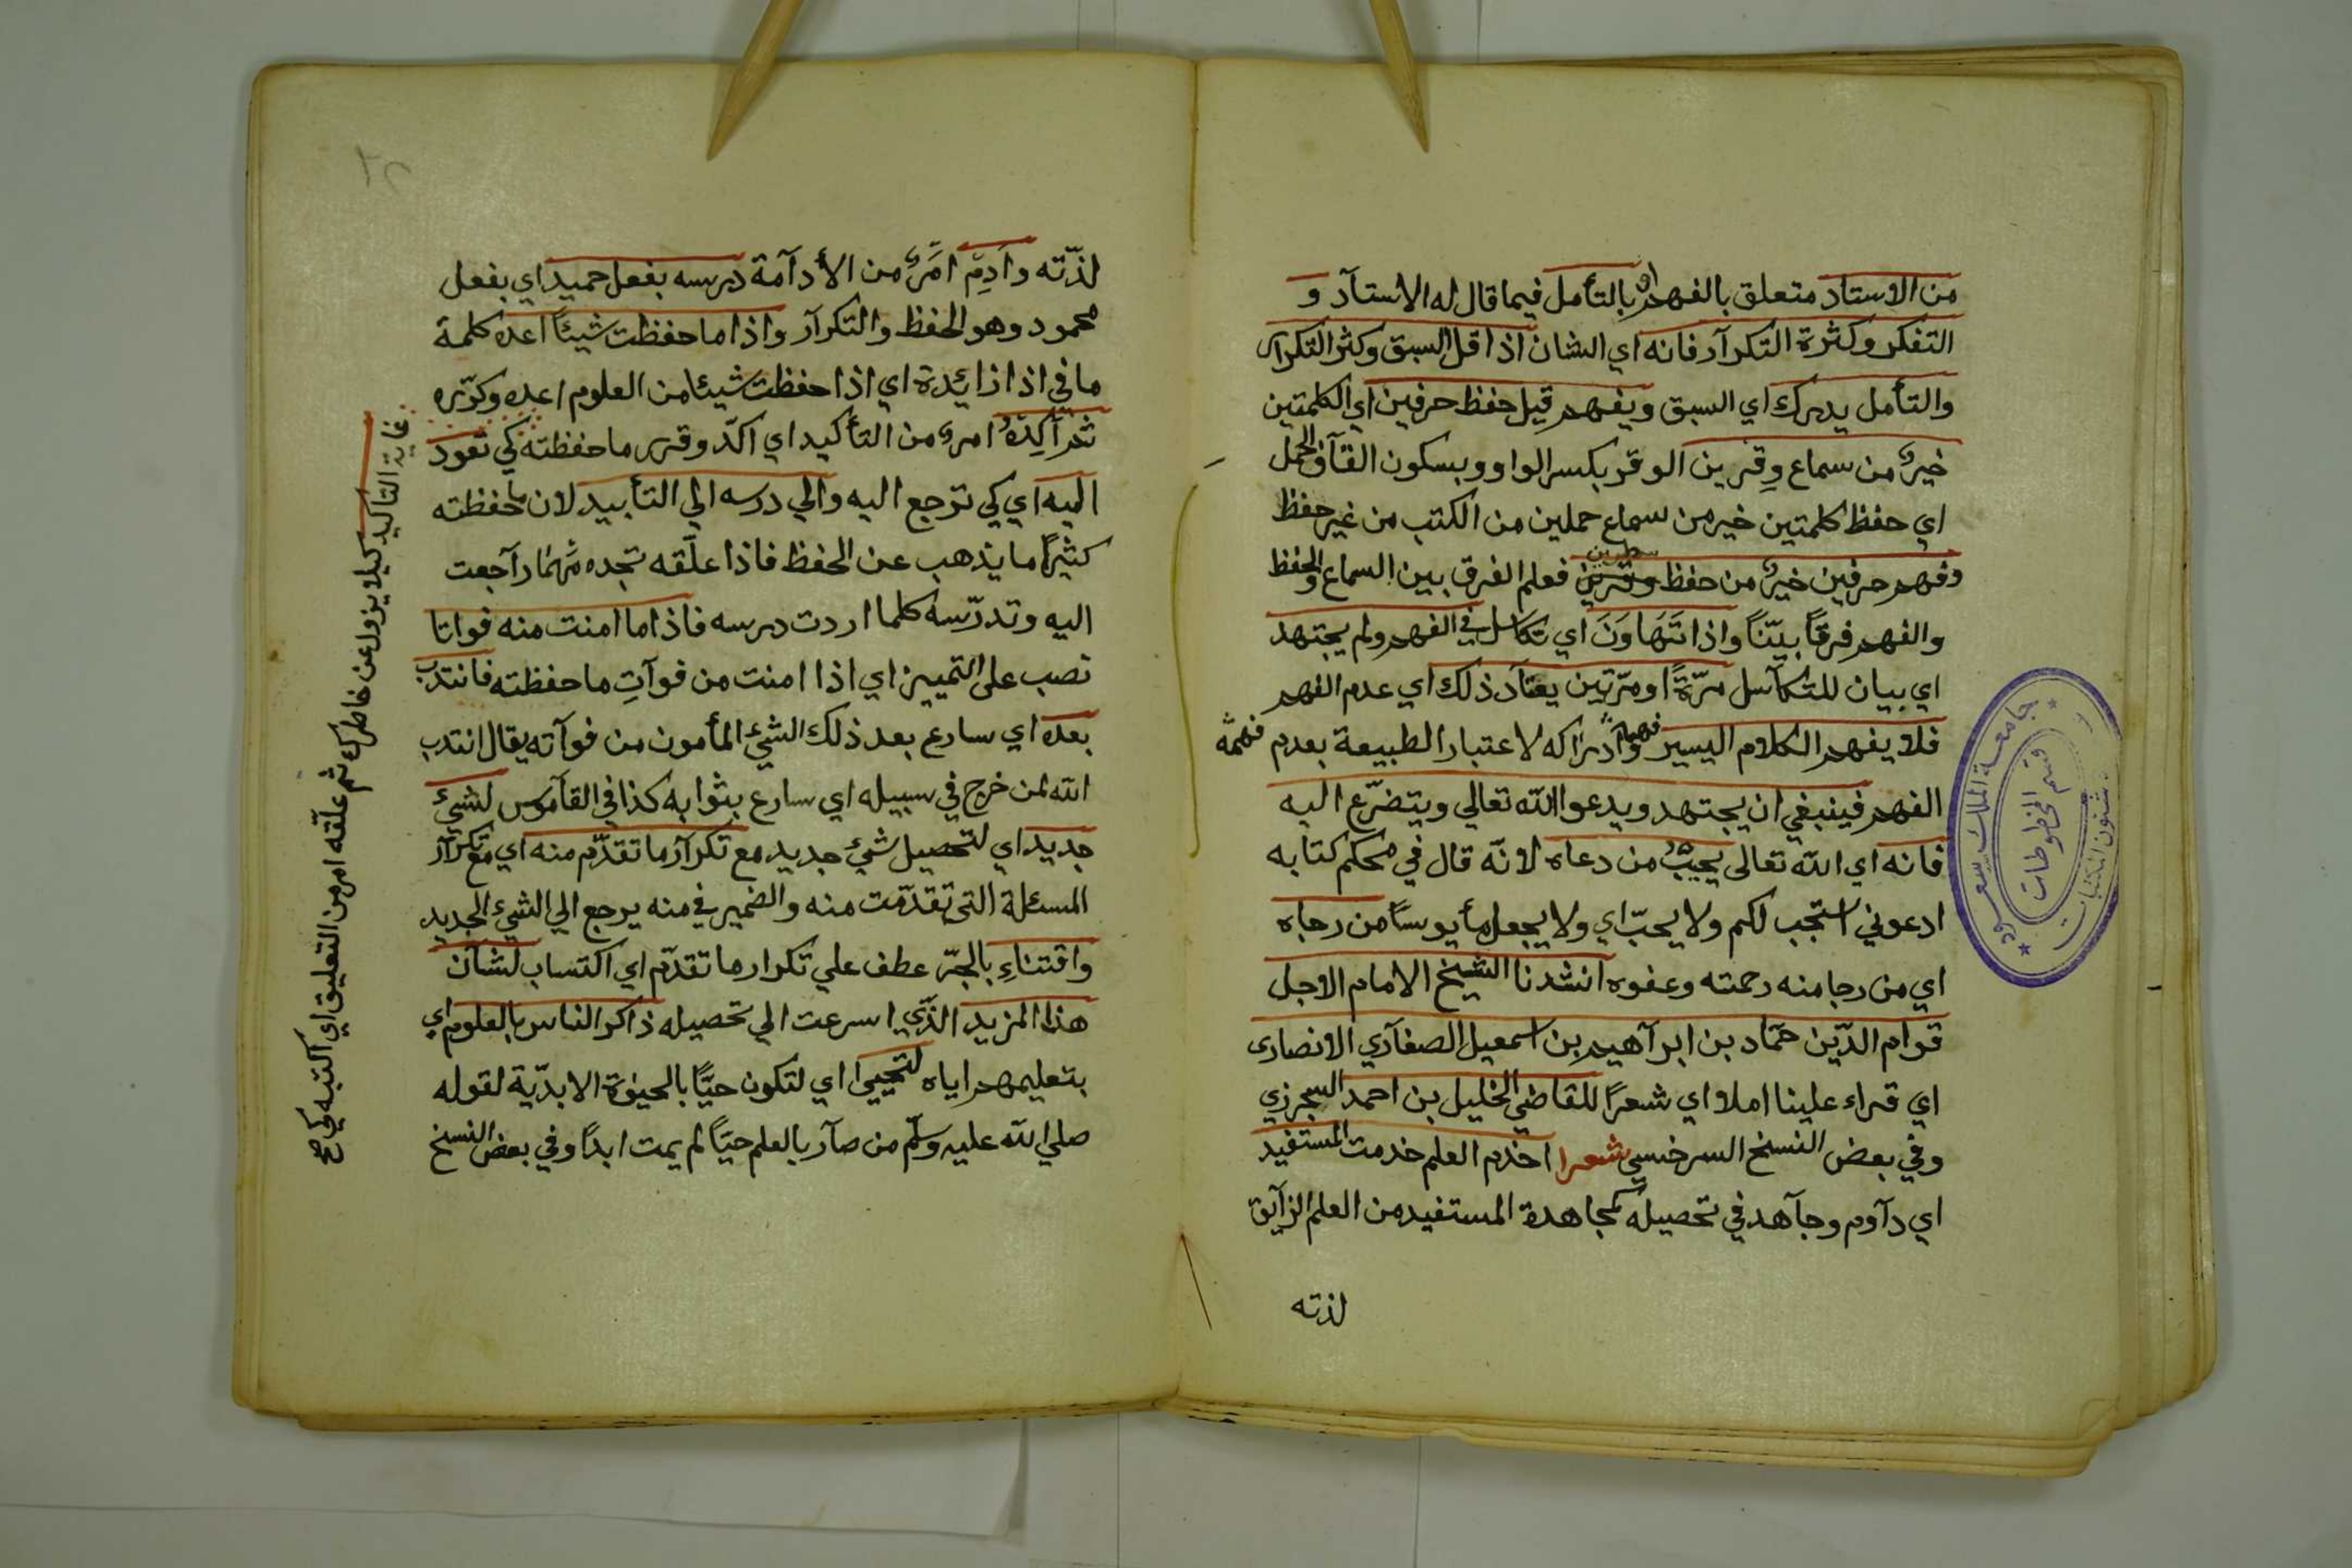 من الاستاد متعلق بالفهم او بالتأمل فيما قال له الاستآد و
التفكر وكثرة التكرآر فانه اي الشان اذا قل السبق وكثر التكرار
والتأمل يدرك اي السبق ويفهم قيل حفظ حرفين اي الكلمتين
خير من سماع وقرين الوقر بكسر الواو وبسكون القآف الحمل
اي حفظ كلمتين خير من سماع حملين من الكتب من غير حفظ
وفهم حرفين خير من حفظ وقرين سطرين فعلم الفرق بين السماع والحفظ
والفهم فرقاً بيّناً واذا تَهَاوَنَ اي تكاسل في الفهم ولم يجتهد
اي بيان للتكآسل مرّةً او مرّتين يعتآد ذلك اي عدم الفهم
فلا يفهم الكلام اليسير فهمه وادراكه لاعتبار الطبيعة بعدم فهمه
الفهم فينبغي ان يجتهد ويدعو الله تعالي ويتضرّع اليه
فانه اي الله تعالى يجيبُ من دعاه لانّه قال في محكم كتابه
ادعوني استجب لكم ولا يخيّب اي ولا يجعل مأيوساً من رجاه
اي من رجا منه رحمته وعفوه انشدنا الشيخ الامام الاجل
قوام الدّين حمّاد بن ابرآهيم بن اسمعيل الصفآري الانصاري
اي قراء علينا املاء اي شعرًا للقاضي الخليل بن احمد السجرزي
وفي بعض النسخ السرخسي شعرا اخدم العلم خدمت المستفيد
اي دآوم وجآهد في تحصيله كمجاهدة المستفيد من العلم الزآيق
لذته
لذّته وأَدِمْ امَرٌ من الأدآمة درسه بفعل حميد اي بفعل
محمود وهو الحفظ والتكرآر واذا ما حفظت شيئاً اعده كلمة
ما في اذا زائدة اي اذا حفظت شيئا من العلوم اعده وكرّره
ثم أكِّدْهُ امر من التأكيد اي اكّد وقرر ما حفظته كي تعود
اليه اي كي ترجع اليه والي درسه الي التأبيد لان ما حفظته
كثيرًا ما يذهب عن الحفظ فاذا علّقه تجده مهما رآجعت
اليه وتدرّسه كلما اردت درسه فاذا ما امنت منه فواتا
نصب على التمييز اي اذا امنت من فوآتِ ما حفظته فانتدب
بعده اي سارع بعد ذلك الشئ المأمون من فوآته يقال انتدب
الله لمن خرج في سبيله اي سارع بثوابه كذا في القآموس لشئ
جديد اي لتحصيل شئ جديد مع تكرآر ما تقدّم منه اي مع تكرآر
المسئلة التى تقدّمت منه والضمير في منه يرجع الي الشئ الجديد
واقتناءِ بالجرّ عطف علي تكرار ما تقدّم اي اكتساب لشان
هذا المزيد الذّي اسرعت الي تحصيله ذاكر الناس بالعلوم اي
بتعليمهم اياه لتحيى اي لتكون حيًّا بالحيوة الابديّة لقوله
صلي الله عليه وسلّم من صآر بالعلم حيّاً لم يمت ابدًا وفي بعض النسخ
غاية التاكيد كيلا يزول عن خاطرك ثم علّقه امر من التعليق اي اكتبه كي صح
جامعة الملك سعود
قسم المخطوطات
شئون المكتبات